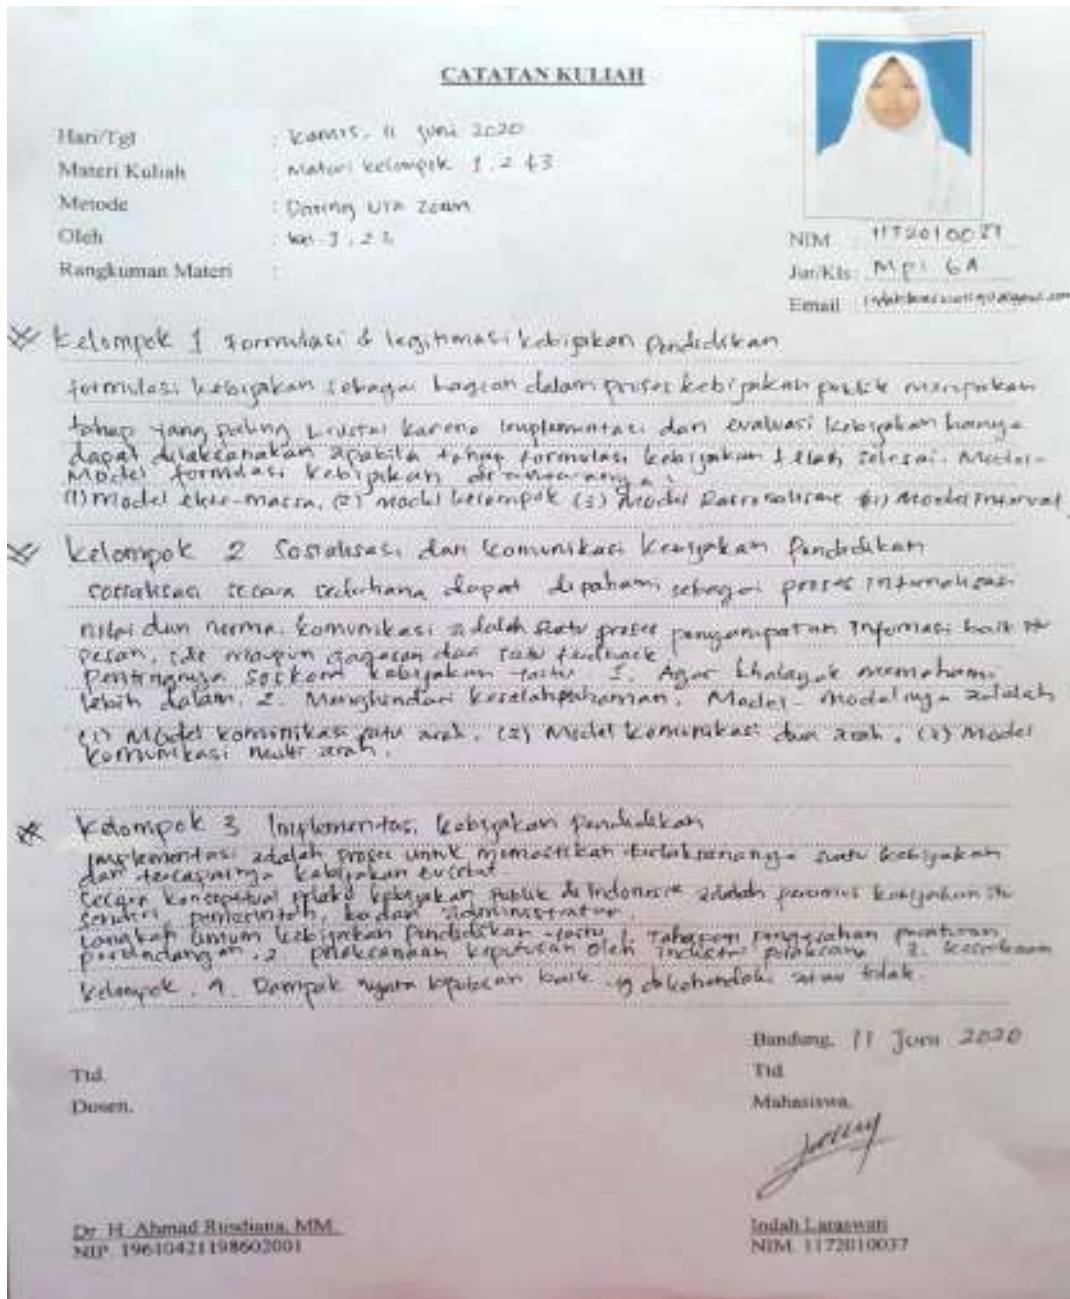 CATATAN KULIAH
Hari/Tgl : Kamis, 11 Juni 2020
Materi Kuliah : Materi kelompok 1, 2 & 3
Metode : Daring via Zoom
Oleh : kel 1, 2 3
Rangkuman Materi :
NIM : 1172010037
Jur/Kls : MPI 6A
Email :
Kelompok 1 Formulasi & legitimasi kebijakan pendidikan
formulasi kebijakan sebagai bagian dalam proses kebijakan publik merupakan
tahap yang paling krustal karena implementasi dan evaluasi kebijakan hanya
dapat dilaksanakan apabila tahap formulasi kebijakan telah selesai. Model-
Model formulasi kebijakan diantaranya :
(1) Model elite-massa, (2) model kelompok (3) Model Rasionalisme Model
Kelompok 2 Sosialisasi dan komunikasi kebijakan Pendidikan
sosialisasi secara sederhana dapat dipahami sebagai proses internalisasi
nilai dan norma. komunikasi adalah suatu proses penyampaian informasi baik itu
pesan, ide maupun gagasan dan feedback
Pentingnya soskom kebijakan yaitu 1. Agar khalayak memahami
lebih dalam. 2. Menghindari kesalahpahaman. Model-modelnya adalah
(1) Model komunikasi satu arah, (2) Model komunikasi dua arah, (3) Model
komunikasi arah.
Kelompok 3 Implementasi kebijakan pendidikan
Implementasi adalah proses untuk memastikan terlaksananya suatu kebijakan
dan tercapainya kebijakan tersebut.
Secara konseptual kebijakan Publik di Indonesia adalah perumus kebijakan itu
sendiri, pemerintah, badan administratur.
Langkah Umum kebijakan Pendidikan yaitu 1. Tahapan pengesahan peraturan
perundangan, 2 pelaksanaan keputusan oleh pelaksana 3. kesediaan
kelompok, 4. Dampak nyata keputusan baik yg dikehendaki atau tidak.
Bandung, 11 Juni 2020
Ttd.
Dosen,
Ttd
Mahasiswa,
Dr. H. Ahmad Rusdiana, MM.
NIP. 19610421198602001
Indah Laraswati
NIM. 1172010037